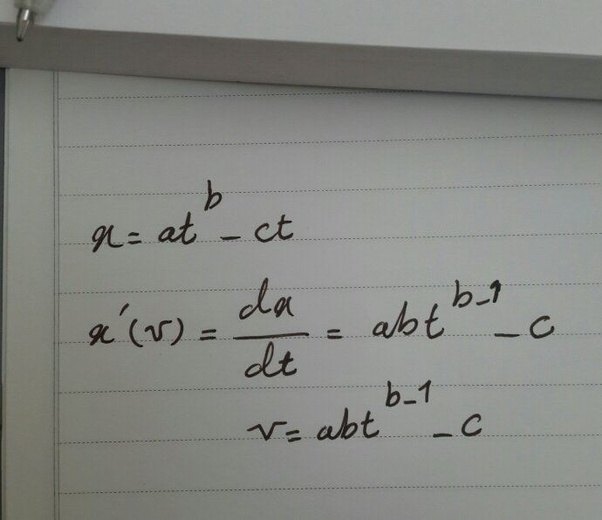 x = at^b - ct
x'(v) = dx/dt = abt^(b-1) - c
v = abt^(b-1) - c